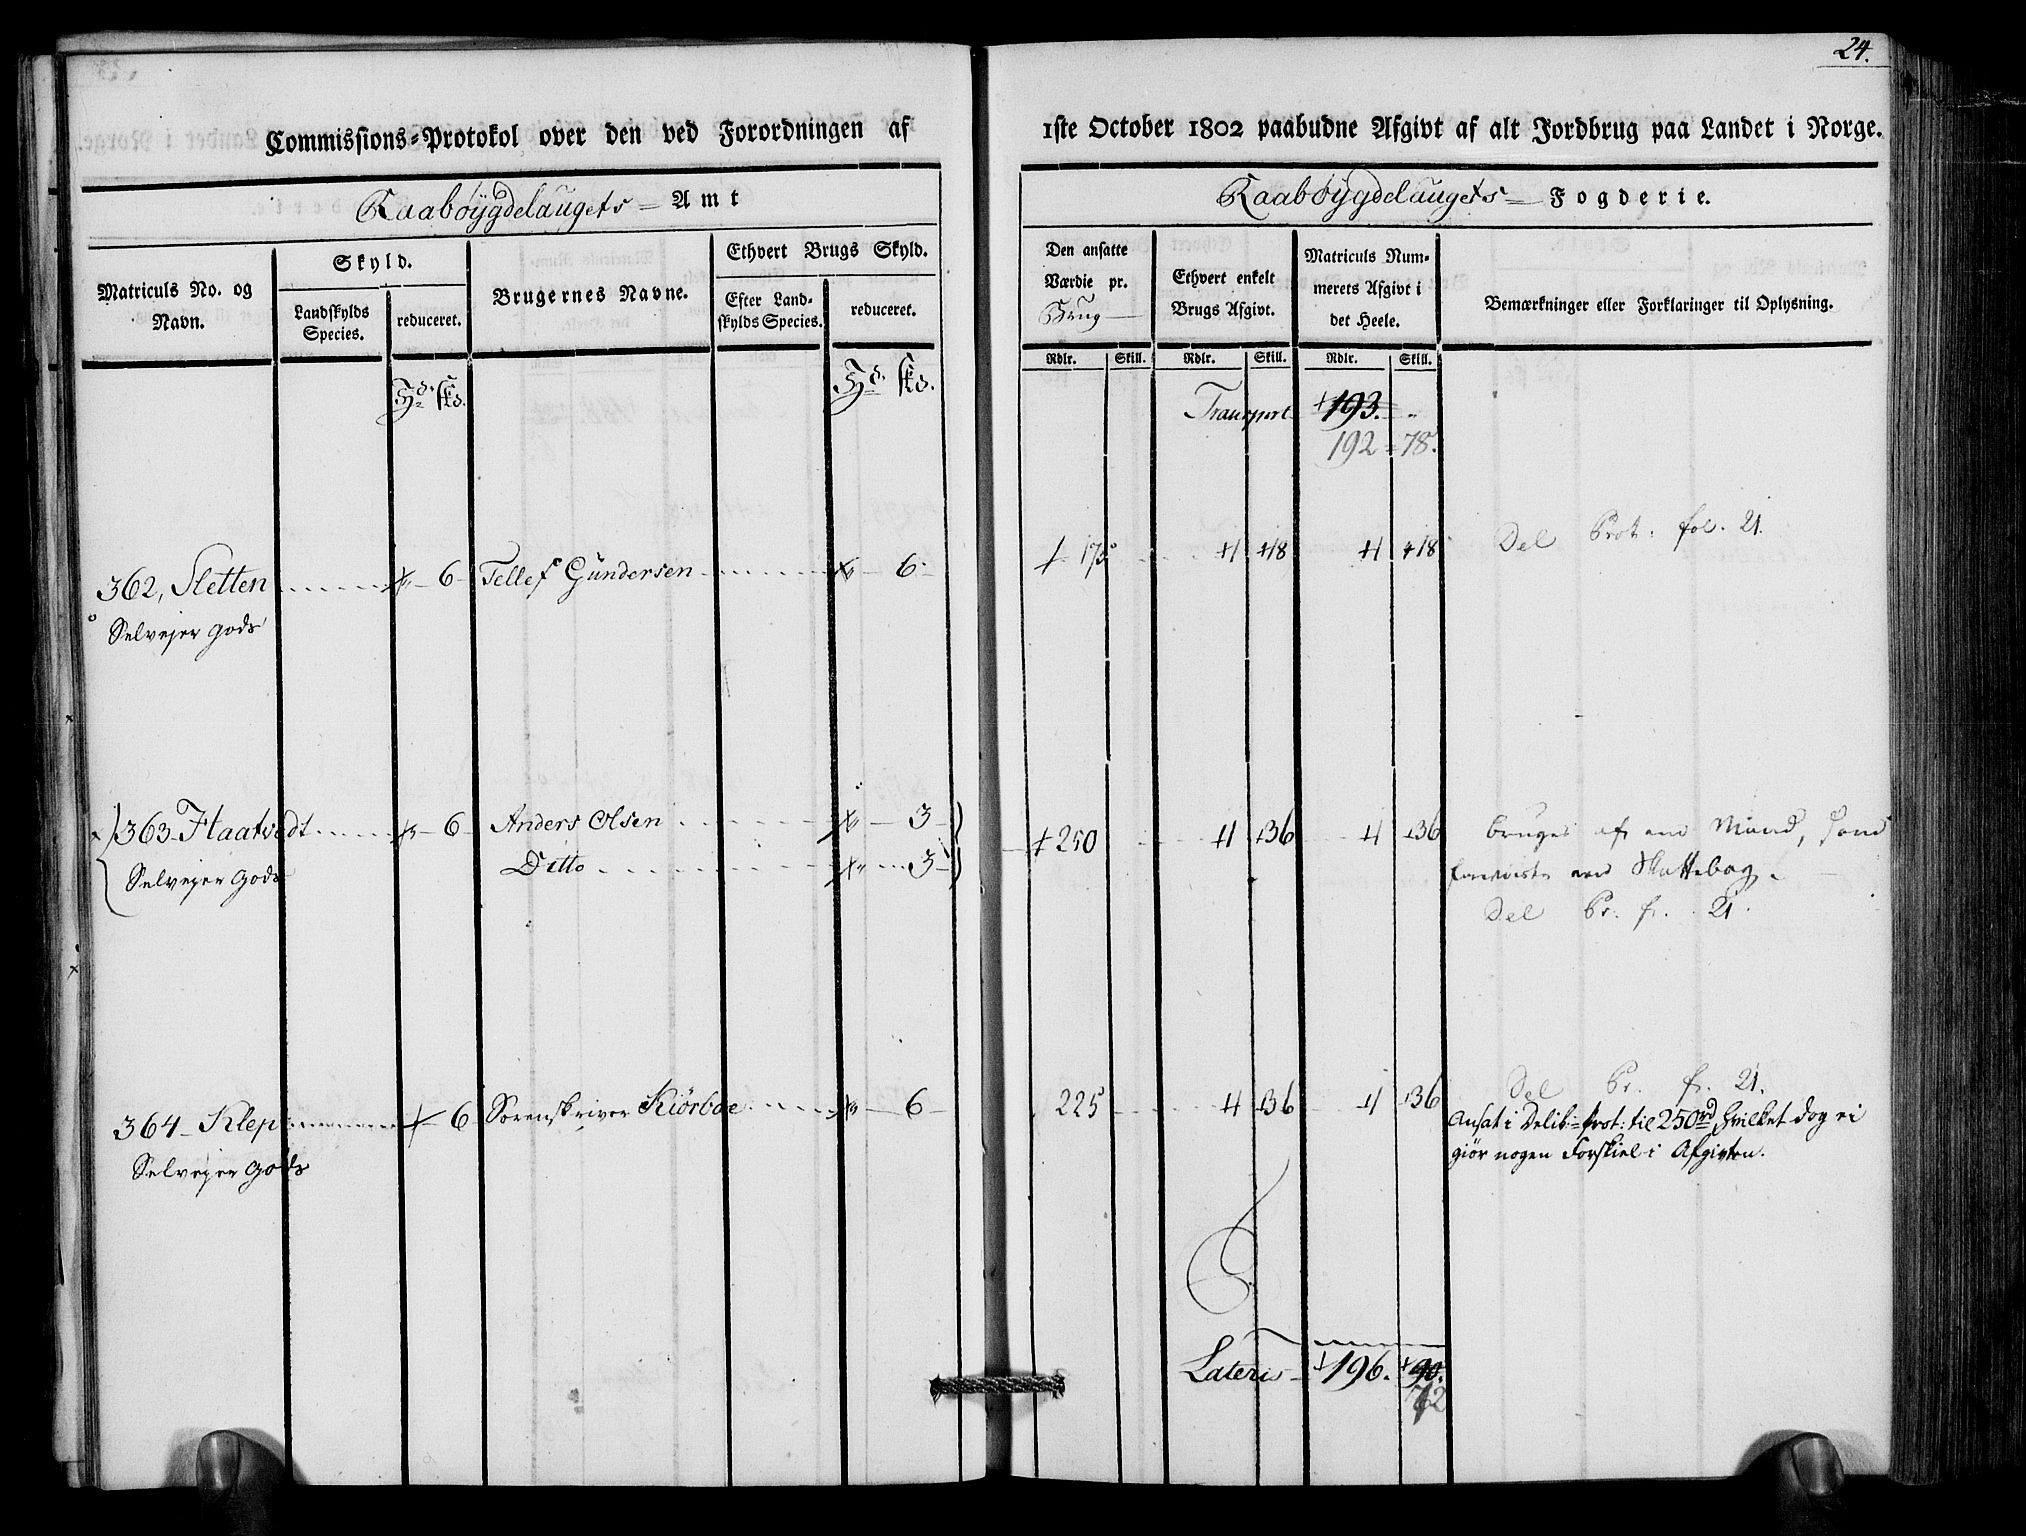 24.
Commissions-Protokol over den ved Forordningen af
1ste October 1802 paabudne Afgivt af alt Jordbrug paa Landet i Norge.
Raabøygdelaugets Amt
Raabøygdelaugets Fogderie.
Matriculs No. og Navn.
Skyld.
Landskylds Species.
reduceret.
Brugernes Navne.
Ethvert Brugs Skyld.
Efter Landskylds Species.
reduceret.
Den ansatte Værdie pr. Brug
Ethvert enkelt Brugs Afgivt.
Matriculs Nummerets Afgivt i det Heele.
Bemærkninger eller Forklaringer til Oplysning.
Rdlr. Skill. Rdlr. Skill. Rdlr. Skill.
Transport 193. "
192 = 78.
362, Sletten 6 Tellef Gundersen 6 175 1 18 1 18 Del Prot: fol. 21.
Selvejer gods
363 Flaatvedt 6 Anders Olsen 3 250 1 36 1 36 bruges af en Mand,
Ditto 3
Selvejer Gods
Skattebog.
Del Pr. f. 21.
364 Klep 6 Sorenskriver Kiörboe 6 225 1 36 1 36 Del Pr. f. 21.
Selvejer Gods
Ansat i Delib: Prot: til 250 rd, hvilket dog ei
giör nogen Forskiel i Afgivten.
Lateris 196. 90.
72